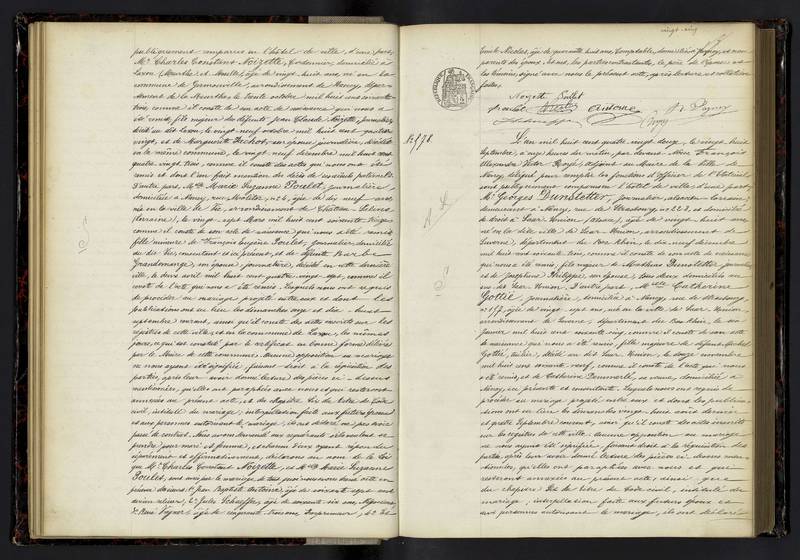 publiquement comparus en l'hôtel de ville, d'une part,
Mr. Charles Constant Noizette, Cordonnier, domicilié à
Laxou (Meurthe et Moselle), âgé de vingt huit ans, né en la
commune de arrondissement de Nancy, dépar-
tement de la Meurthe, le trente octobre mil huit cent soixante
trois, comme il conste de son acte de naissance qui nous a
été remis, fils majeur des défunts Jean Claude Noizette,
décédé au dit Laxou, le vingt neuf octobre mil huit cent quatre
vingt, et de Marguerite son épouse, journalière, décédée
en la même commune, le vingt neuf mil huit cent
quatre vingt trois, comme il conste des actes qui nous ont été
remis et dont l'un fait mention du décès de ses aïeuls paternels.
D'autre part, Mlle Marie Suzanne Poulet, journalière,
domiciliée à Nancy, rue n° 6, âgée de dix neuf ans,
née en la ville de Vic, arrondissement de Château-Salins
(Lorraine), le vingt sept Mars mil huit cent soixante treize,
comme il conste de son acte de naissance qui nous a été remis,
fille mineure de François Eugène Poulet, journalier, domicilié
au dit Vic, consentant et ici présent, et de défunte Barbe
Grandmange, son épouse, journalière, décédée en cette dernière
ville, le deux avril mil huit cent quatre vingt sept, comme il
conste de l'acte qui nous a été remis. Lesquels nous ont requis
de procéder au mariage projeté entre eux et dont les
publications ont eu lieu les dimanches onze et dix huit
septembre courant, ainsi qu'il conste des actes inscrits sur les
registres de cette ville et en la commune de Laxou, les mêmes
jours, ce qui est constaté par le certificat en bonne forme délivré
par le Maire de cette commune. Aucune opposition au mariage
ne nous ayant été signifiée, faisant droit à la réquisition des
parties, après leur avoir donné lecture des pièces ci-dessus
mentionnées, qu'elles ont paraphées avec nous et qui resteront
annexées au présent acte, et du chapitre six du titre du Code
civil, intitulé du mariage, interpellation faite aux futurs époux
et aux personnes autorisant le mariage, ils ont déclaré ne pas avoir
passé de contrat. Nous avons demandé aux requérants s'ils veulent se
prendre pour mari et femme, et chacun d'eux ayant répondu
séparément et affirmativement, déclarons au nom de la Loi
que Mr. Charles Constant Noizette, et Mlle Marie Suzanne
Poulet, sont unis par le mariage, de tout quoi nous avons dressé acte en
présence de sieurs: 1° Jean Baptiste Antoine, âgé de soixante sept ans
2° Jules Schaeffer, âgé de soixante six ans,
3° René Pognon, âgé de cinquante trois ans, Imprimeur, 4°
vingt-cinq
Émile Nicolas, âgé de quarante huit ans, Comptable, domiciliés à Nancy, et non
parents des époux. Et ont, les parties contractantes, le père de l'épouse et
les témoins, signé avec nous le présent acte, après lecture et collation
faites.
Noizette Poulet
Antoine
N° 498
L'an mil huit cent quatre vingt douze, le vingt huit
Septembre, à onze heures du matin, par devant Nous François
Alexandre Victor adjoint au Maire de la Ville de
Nancy, délégué pour remplir les fonctions d'Officier de l'État civil,
sont publiquement comparus en l'hôtel de ville, d'une part,
Mr. Georges Dunstetter, journalier, alsacien-lorrain,
demeurant à Nancy, rue de Strasbourg, n° 223, et domicilié
de droit à Saar-Union (Alsace), âgé de vingt huit ans,
né en la dite ville de Saar-Union, arrondissement de
Saverne, département du Bas Rhin, le dix neuf décembre
mil huit cent soixante trois, comme il conste de son acte de naissance
qui nous a été remis, fils majeur de Mathieu Dunstetter, journalier,
et de Joséphine Philippe, son épouse, tous deux domiciliés au
dit Saar-Union. D'autre part, Mlle Catherine
Gottié, journalière, domiciliée à Nancy, rue de Strasbourg,
n° 157, âgée de vingt sept ans, née en la ville de Saar-Union,
arrondissement de Saverne, département du Bas Rhin, le
Janvier mil huit cent soixante cinq, comme il conste de son acte
de naissance qui nous a été remis, fille majeure de défunt Michel
Gottié, décédé au dit Saar-Union, le douze novembre
mil huit cent soixante neuf, comme il conste de l'acte qui nous
a été remis, et de Catherine sa veuve, domiciliée à
Nancy, ici présente et consentante. Lesquels nous ont requis de
procéder au mariage projeté entre eux et dont les publica-
tions ont eu lieu les dimanches vingt huit août dernier
et quatre Septembre courant, ainsi qu'il conste des actes inscrits
sur les registres de cette ville. Aucune opposition au mariage
ne nous ayant été signifiée, faisant droit à la réquisition des
parties, après leur avoir donné lecture des pièces ci-dessus men-
tionnées, qu'elles ont paraphées avec nous et qui
resteront annexées au présent acte, ainsi que
du chapitre six du titre du Code civil, intitulé du
mariage, interpellation faite aux futurs époux et
aux personnes autorisant le mariage, ils ont déclaré